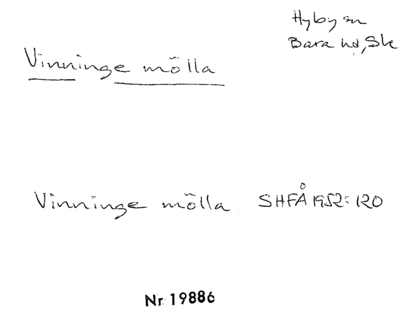 Hyby sn
Bara hd, Sk
Vinninge mölla
Vinninge mölla SHFÅ 1952:120
Nr 19886